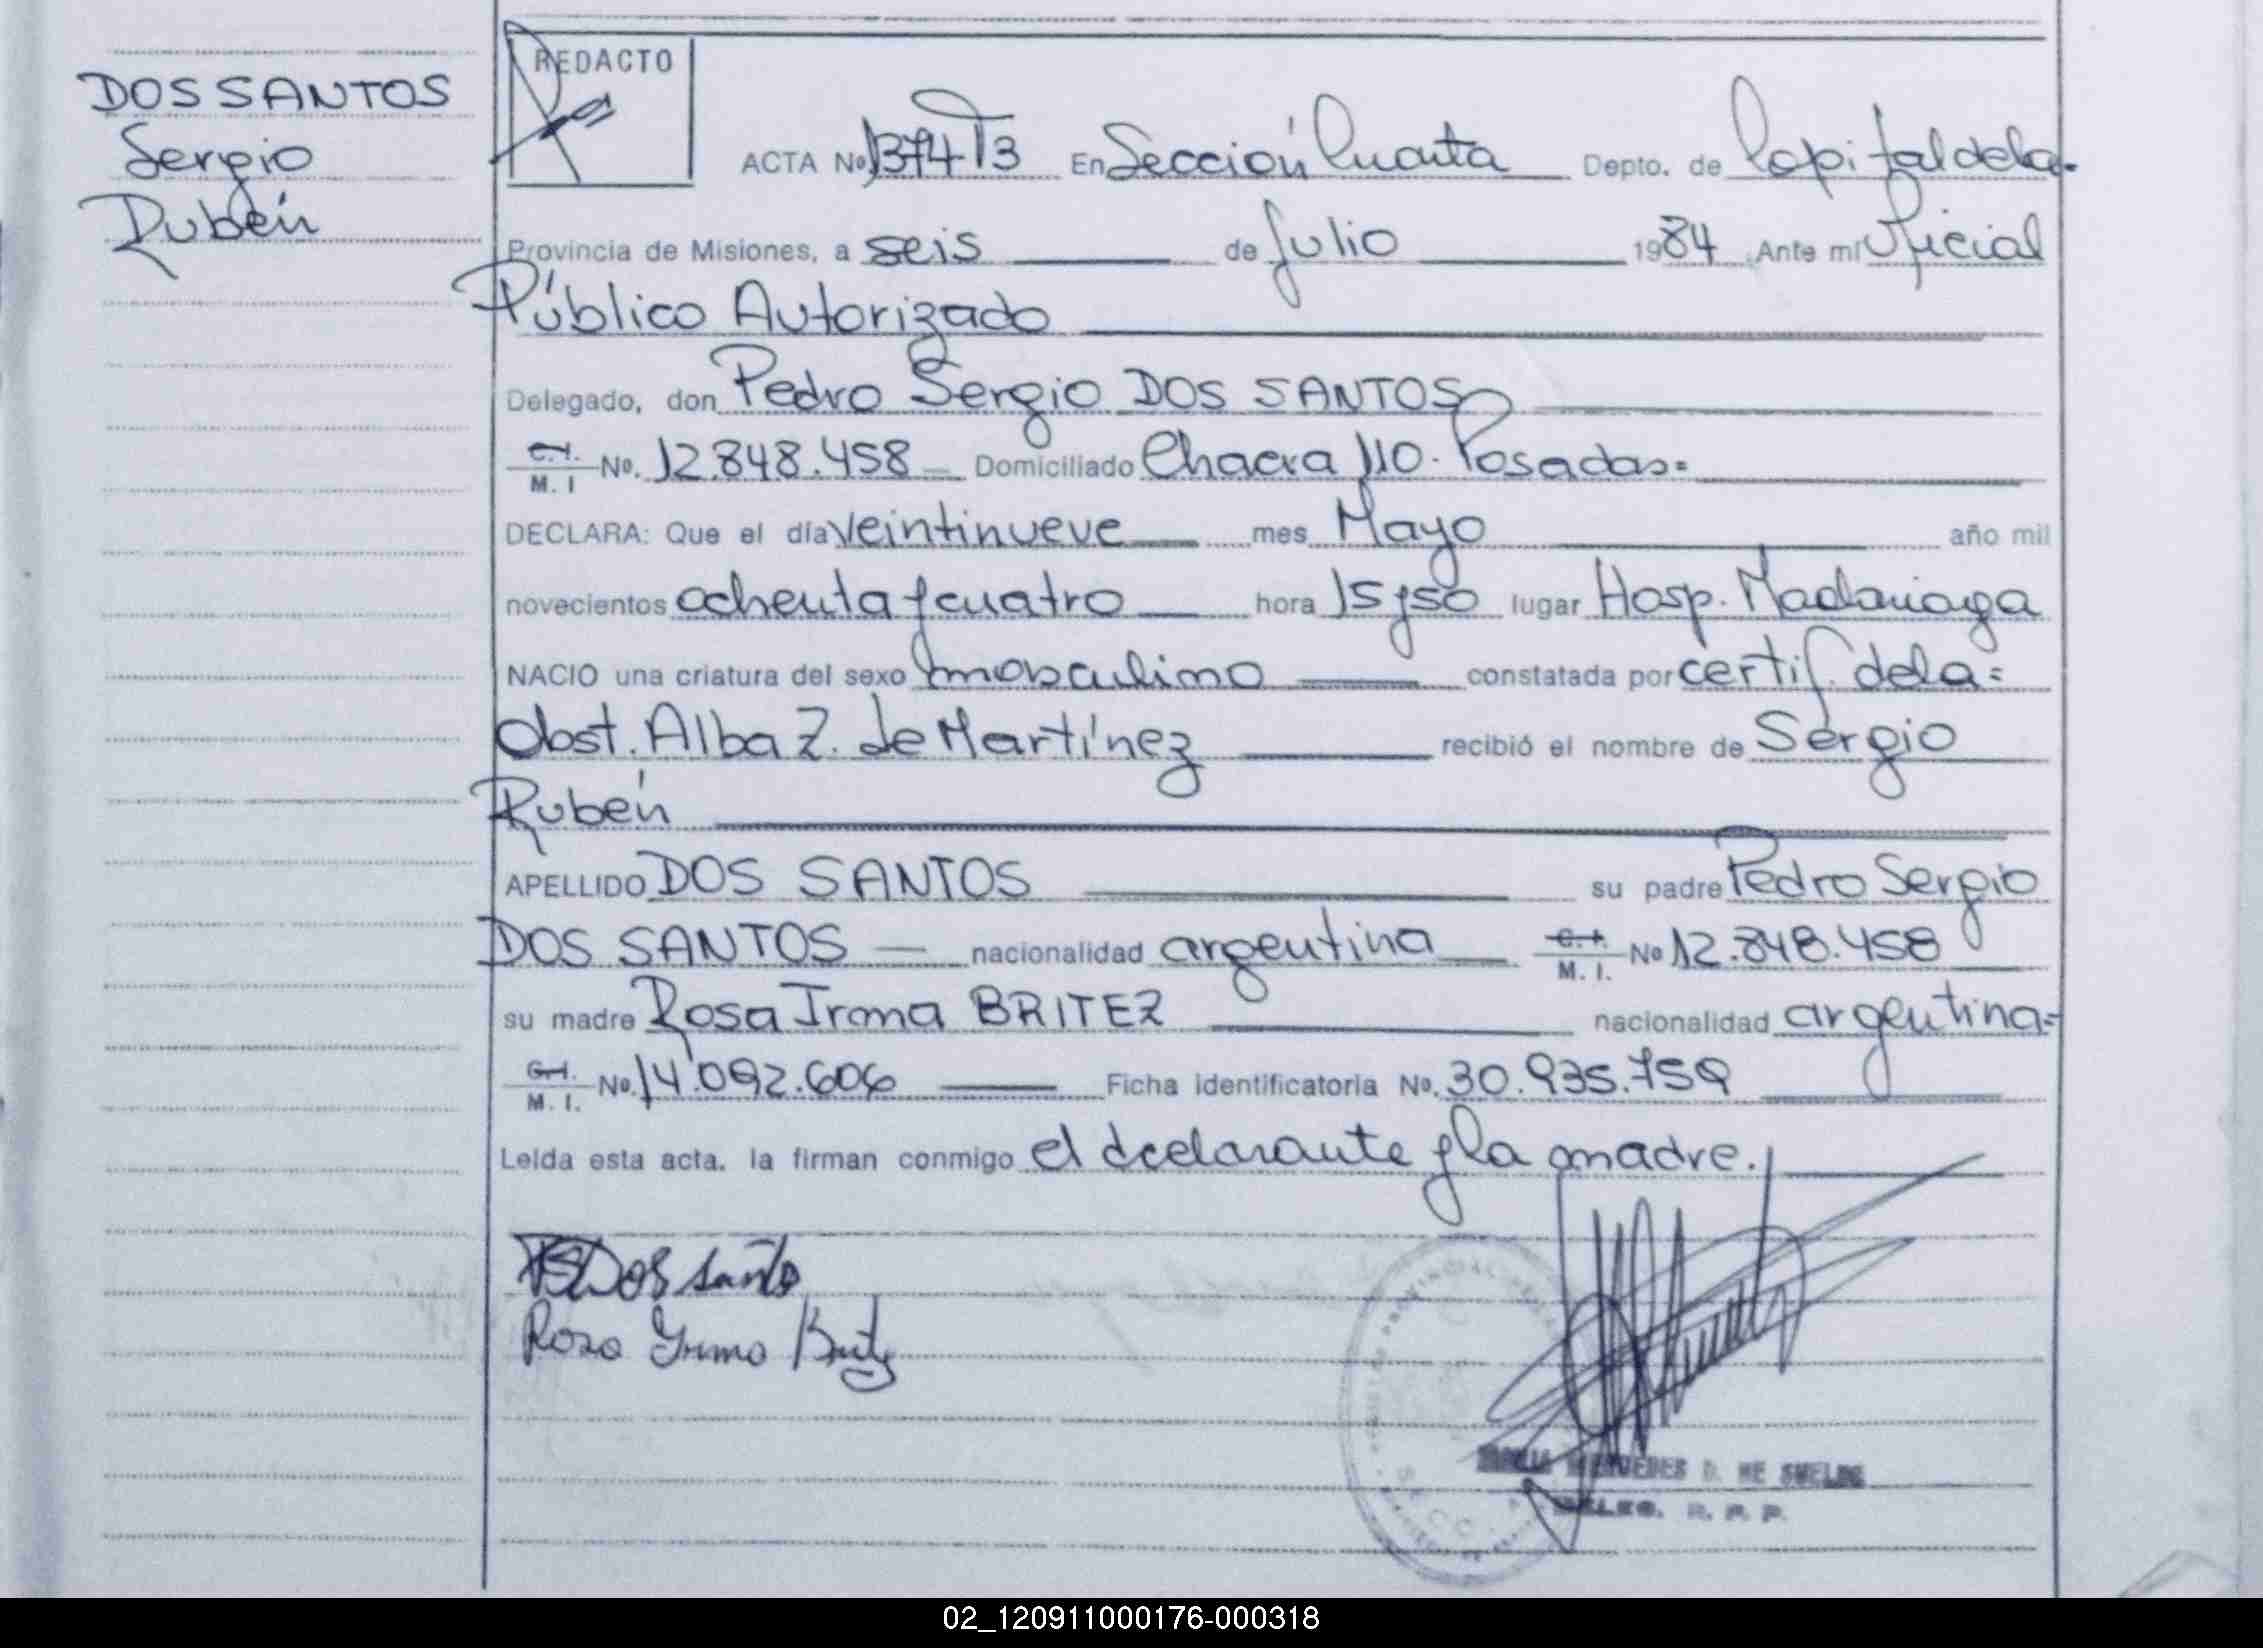 DOS SANTOS
Sergio
Rubén
REDACTO
ACTA Nº 1374 T3 En Sección Cuarta Depto. de Capital de la-
Provincia de Misiones, a seis de Julio 1984 Ante mí Oficial
Público Autorizado
Delegado, don Pedro Sergio DOS SANTOS
C.I. M. I Nº. 12.848.458 Domiciliado Chacra 110. Posadas=
DECLARA: Que el día veintinueve mes Mayo año mil
novecientos ochenta y cuatro hora 15 y 50 lugar Hosp. Madariaga
NACIO una criatura del sexo masculino constatada por certif. de la=
Obst. Alba Z. de Martínez recibió el nombre de Sergio
Rubén
APELLIDO DOS SANTOS su padre Pedro Sergio
DOS SANTOS nacionalidad argentina C.I. M. I. Nº 12.848.458
su madre Rosa Irma BRITEZ nacionalidad argentina=
C.I. M. I. Nº. 14.092.606 Ficha identificatoria Nº. 30.935.759
Leída esta acta, la firman conmigo el declarante y la madre.
PS Dos Santos
Rosa Irma Britez
MERCEDES D.
02_120911000176-000318